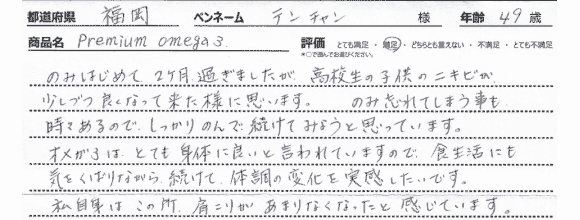 都道府県 福岡 ペンネーム テンチャン 様 年齢 49 歳
商品名 Premium omega3. 評価 とても満足・満足・どちらとも言えない・不満足・とても不満足
※○で囲んでお選びください。
のみはじめて 2ケ月過ぎましたが 高校生の子供のニキビが
少しづつ良くなって来た様に思います。 のみ忘れてしまう事も
時々あるので、しっかりのんで続けてみようと思っています。
オメガ3は、とても身体に良いと言われていますので、食生活にも
気をくばりながら、続けて、体調の変化を実感したいです。
私自身は この所、肩こりが あまりなくなったと 感じています。